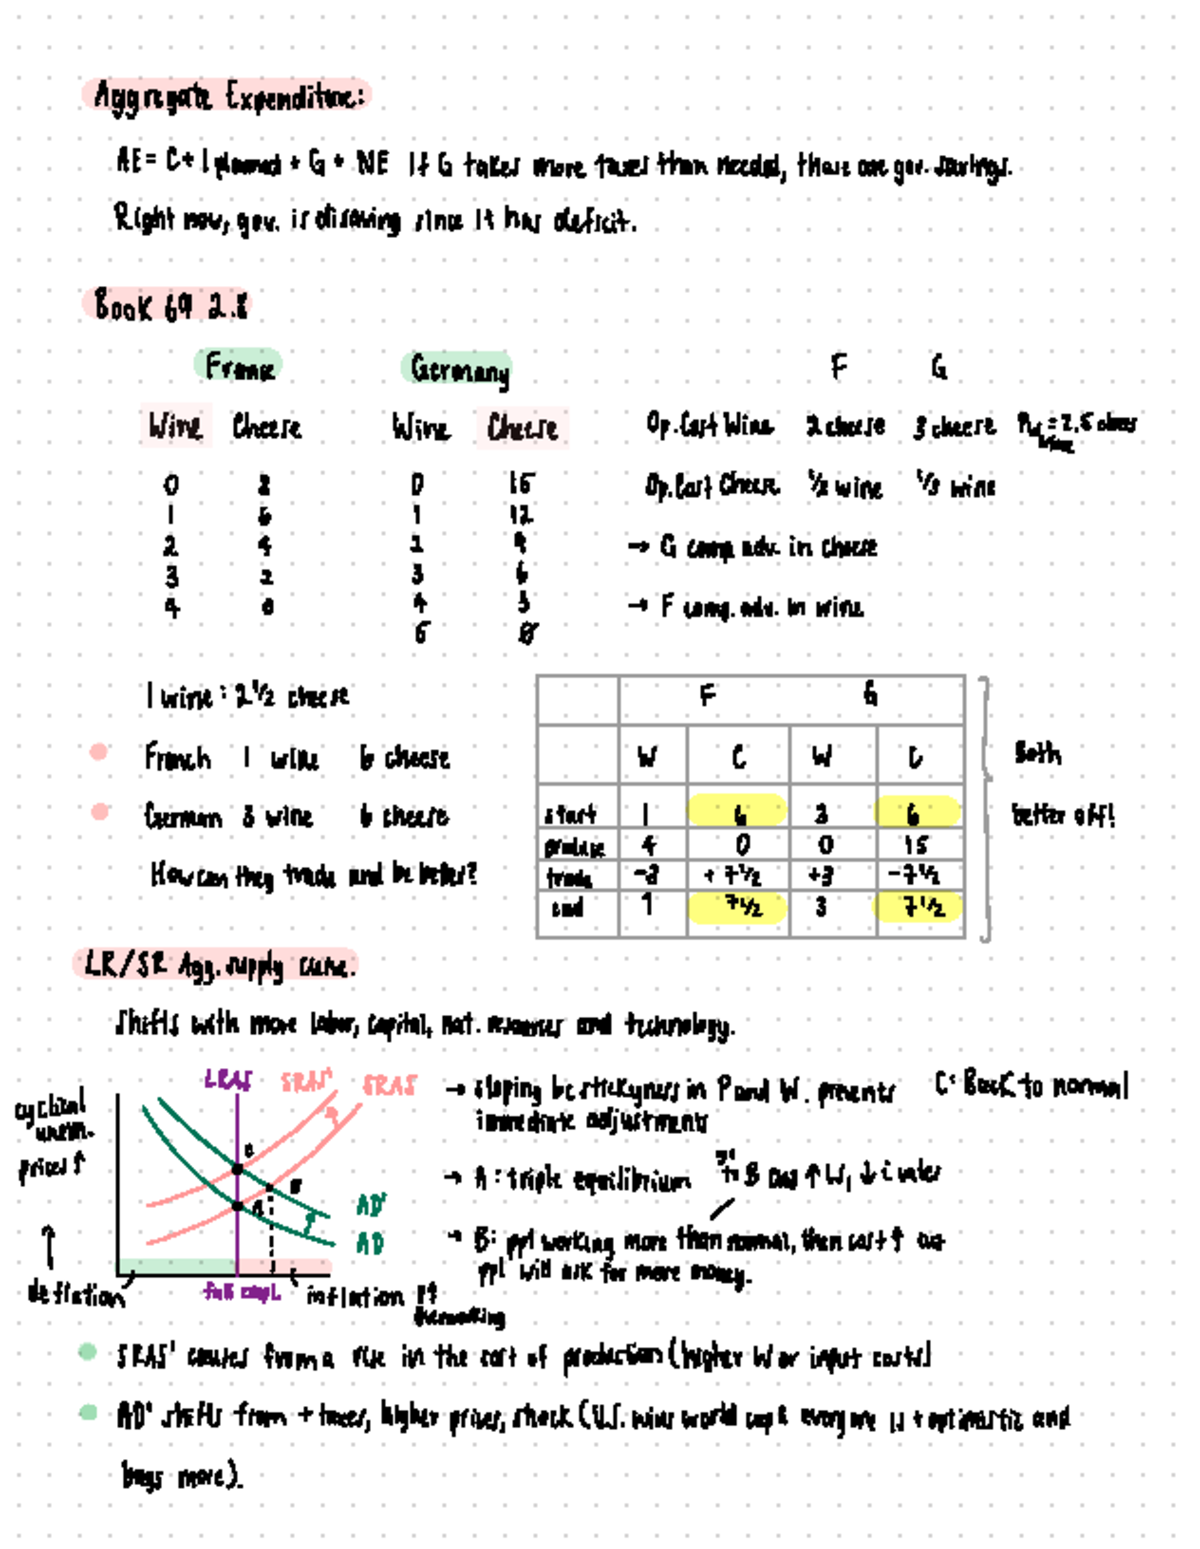 Aggregate Expenditure:
AE = C + I planned + G + NE If G takes more taxes than needed, there are gov. savings.
Right now, gov. is disaving since it has deficit.
Book 69 2.8
France Germany F G
Wine Cheese Wine Cheese Op. Cost Wine 2 cheese 3 cheese
0 8 0 15 Op. Cost Cheese 1/2 wine 1/3 wine
1 6 1 12
2 4 2 9 → G comp. adv. in cheese
3 2 3 6
4 0 4 3 → F comp. adv. in wine
5 0
1 wine : 2 1/2 cheese
French 1 wine 6 cheese
German 3 wine 6 cheese
How can they trade and be better?
F G
W C W C
start 1 6 3 6
produce 4 0 0 15
trade -3 + 7 1/2 +3 - 7 1/2
end 1 7 1/2 3 7 1/2
Both
better off!
LR/SR Agg. supply curve.
Shifts with more labor, capital, nat. resources and technology.
LRAS SRAS' SRAS
cyclical
unem.
prices ↑
C
B
A
AD'
AD
deflation full empl. inflation
→ sloping bc stickyness in P and W. prevents
immediate adjustments
C: Back to normal
→ A: triple equilibrium
B: ppl working more than normal, then cost ↑
ppl will ask for more money.
SRAS' causes from a rise in the cost of production (higher W or input costs)
AD' shifts from + taxes, higher prices, shock (U.S. wins world cup & everyone is + optimistic and
buys more).